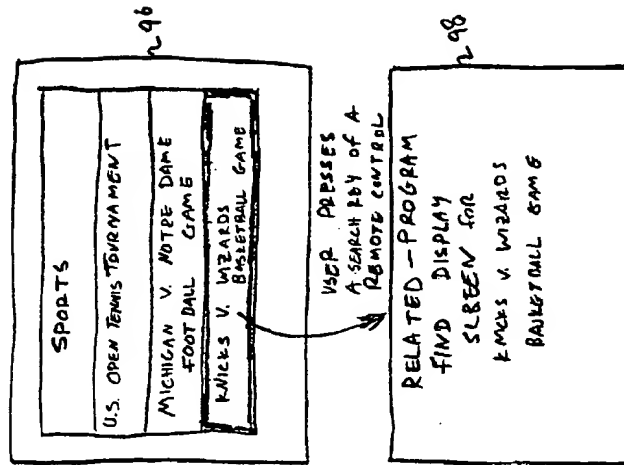 296
SPORTS
U.S. OPEN TENNIS TOURNAMENT
MICHIGAN V. NOTRE DAME
FOOTBALL GAME
KNICKS V. WIZARDS
BASKETBALL GAME
USER PRESSES
A SEARCH KEY OF A
REMOTE CONTROL
298
RELATED-PROGRAM
FIND DISPLAY
SCREEN FOR
KNICKS V. WIZARDS
BASKETBALL GAME